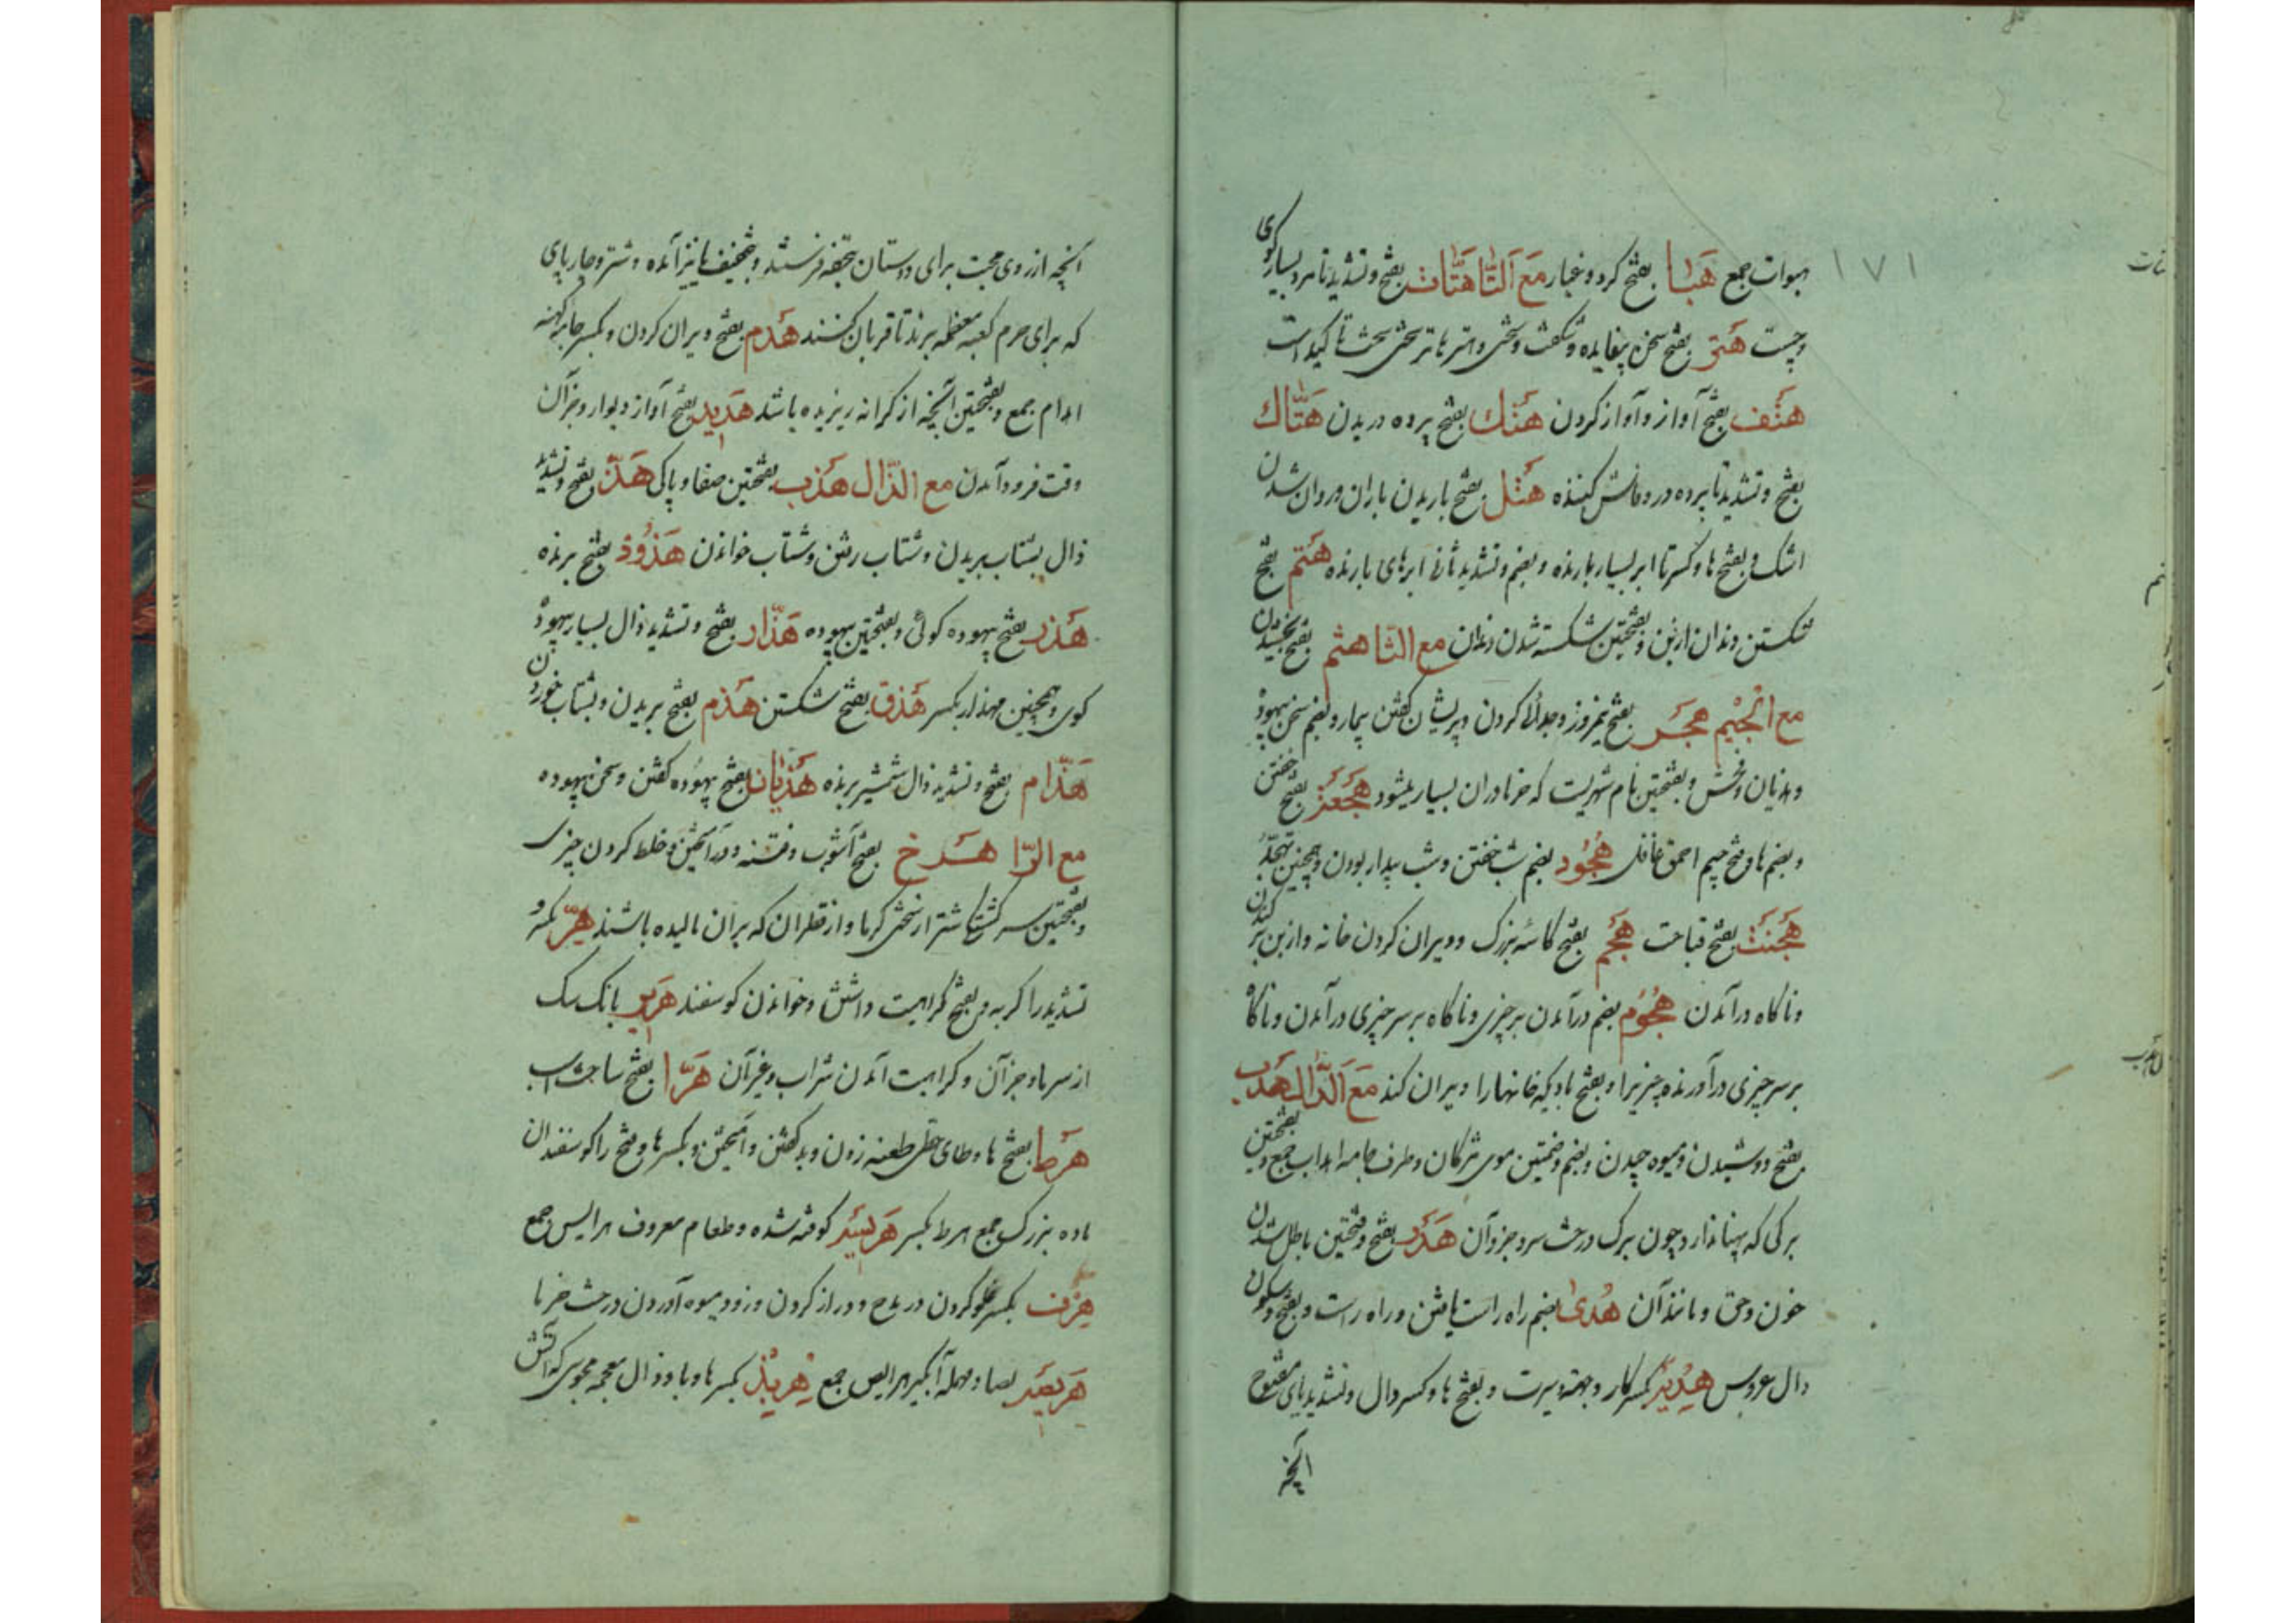 ۱۷۱
هبوات جمع هَبَا بفتح کرد و غبار مَعَ اَلتّا هَتّات بفتح و تشدید تا مرد بسیار کوی
و چست هَتر بفتح سخن بیفایده و شکفت و سختی و هتر هاتر سختی سخت تاکید است
هَتف بفتح آواز و آواز کردن هَتك بفتح پرده دریدن هَتّاك
بفتح و تشدید تا پرده در و فاش کننده هَتل بفتح باریدن باران و روان شدن
اشک و بفتح ها و کسر تا ابر بسیار بارنده و بضم و تشدید ثانی ابرهای بارنده هَتم بفتح
شکستن دندان از بن و بفتحتین شکسته شدن دندان مع الثا هثم بفتح بخشیدن
مع الجیم هجَر بفتح نیمروز و جدائی کردن و پریشان کفتن بیمار و بضم سخن بیهوده
و هذیان و فحش و بفتحتین نام شهریست که خرما در ان بسیار میشود بفتح خفتن
و بضم ها و فتح جیم احمق غافل هُجُود بضم شب خفتن و شب بیدار بودن و همچنین تهجّد
هَجنَت بفتح قباحت هَجم بفتح کاسه بزرک و ویران کردن خانه و از بن بر کندن
و ناکاه درآمدن هُجُوم بضم درآمدن بر چیزی و ناکاه بر سر چیزی درآمدن و ناکا
بر سر چیزی درآورنده چیزیرا و بفتح بادیکه خانهارا ویران کند مَعَ اَلدّال هَدب
بفتح دوشیدن و میوه چیدن و بضم و ضمتین موی مژکان و طرف جامه اهداب جمع و بفتحتین
برکی که پهنا ندارد چون برک درخت سرو و جز آن هَدَر بفتح و فتحتین باطل شدن
خون و حق و مانند آن هُدی بضم راه راست یافتن و راه راست و بفتح و سکون
دال عروس بکسر کار و جهة و سیرت و بفتح ها و کسر دال و تشدید یای مفتوح
آنچه
آنچه از روی محبت برای دوستان بتحفه فرستند و بتخفیف یا نیز آمده و شتر و چارپای
که برای حرم کعبه معظمه برند تا قربان کنند هَدم بفتح ویران کردن و بکسر جامه کهنه
اهدام جمع و بفتحتین آنچه از کرانه ریزیده باشد هَدید بفتح آواز دیوار و جز آن
وقت فرود آمدن مع الذّال هَذب بفتحتین صفا و پاکی هَذّ بفتح و تشدید
ذال بشتاب بریدن و شتاب رفتن و شتاب خواندن هَذُوذ بفتح برنده
هَذر بفتح بیهوده کوئی و بفتحتین بیهوده هَذّار بفتح و تشدید ذال بسیار بیهوده
کوی و همچنین مهذار بکسر هَذق بفتح شکستن هَذم بفتح بریدن و بشتاب خوردن
هَذّام بفتح و تشدید ذال شمشیر برنده هَذیان بفتح بیهوده کفتن و سخن بیهوده
مع الرّا هَرج بفتح آشوب و فتنه و درآمیختن و خلط کردن چیزی
و بفتحتین سرکشتکی شتر از سختی کرما و از قطران که بر ان مالیده باشند هِرّ بکسر و
تشدید را کربه و بفتح کراهیت داشتن و خواندن کوسفند هَریر بانک سک
از سرما و جز آن و کراهیت آمدن شراب و غیر آن هَرّا بفتح
هَرط بفتح ها و طای حطی طعنه زدن و بد کفتن و آمیختن و بکسر ها و فتح را کوسفندان
ماده بزرک جمع هرط بکسر هَریسَه کوفته شده و طعام معروف هرایس جمع
هَرف بکسر غلو کردن در مدح و دراز کردن و زود میوه آوردن درخت خرما
هَریصَه بصاد مهمله آبکیر هرایص جمع هِربذ بکسر ها و با و ذال معجمه مجوسی که آتش